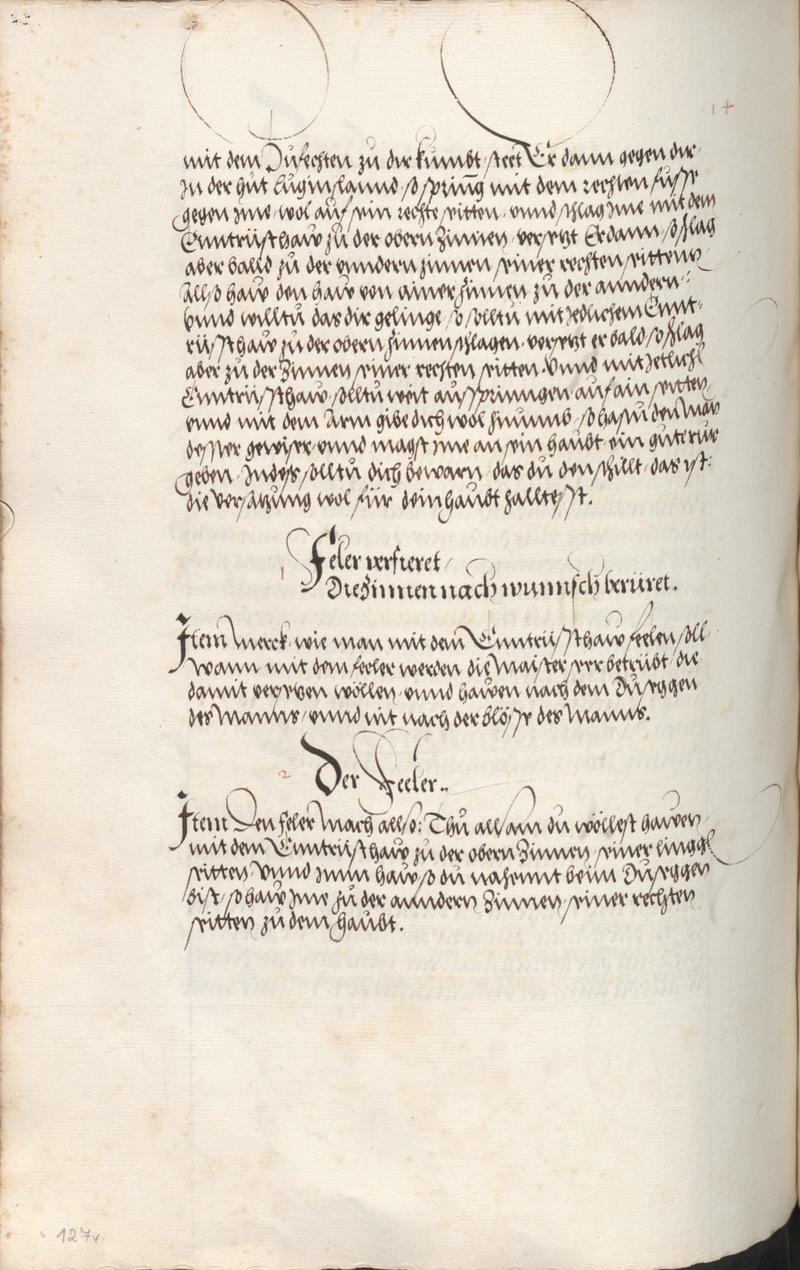 14
mit dem Zufechten zu dir kumbt, steet Er dann gegen dir
In der hut luginslannd, so spring mit dem rechten fuess
gegen Ime, wol auf sein rechte seitten, vnnd schlag Ime mit dem
Enntrüsthaw zu der obern Zinnen, versetzt Er dann, so schlag
aber balld zu der vnndern zinnen, seiner rechten seittenn
Allso haw den haw von ainer Zinnen zu der anndern
Vnnd willtu das dir gelinge, so solltu mit yedlichem Ennt-
rüsthaw zu der obern Zinnen schlagen, versetzt er bald so schlag
aber zu der Zinnen seiner rechten seitten. Vnnd mit yetlichem
Enntrüsthaw solltu weit aufspringen auf ain seitten
vnnd mit dem Arm gibe dich wol hinumb, so hastu den Man
dester gewiser, vnnd magst Ime an sein haubt ein gute rur
geben. Indes solltu dich bewarn, das du den schillt, das ist
die versatzung wol für dein haubt halltesst.
1 Feler verfieret
Die Zinnen nach wunnsch berüret.
Item Merck, wie man mit dem Enntrüsthaw feelen soll
wann mit dem feeler werden die Maister seer betrübt die
damit versetzen wöllen, vnnd hawen nach dem Duseggen
des Manns, vnnd nit nach der blösse des Manns.
2 Der Feeler..
Item Den feler Mach allso: Thu allsam du wöllest hawen
mit dem Enntrüsthaw zu der obern Zinnen, seiner linggen
seitten Vnnd Imm haw so du nahennt beim Duseggen
bist, so haw Ime zu der anndern Zinnen, seiner rechten
seitten zu dem haubt.
127v